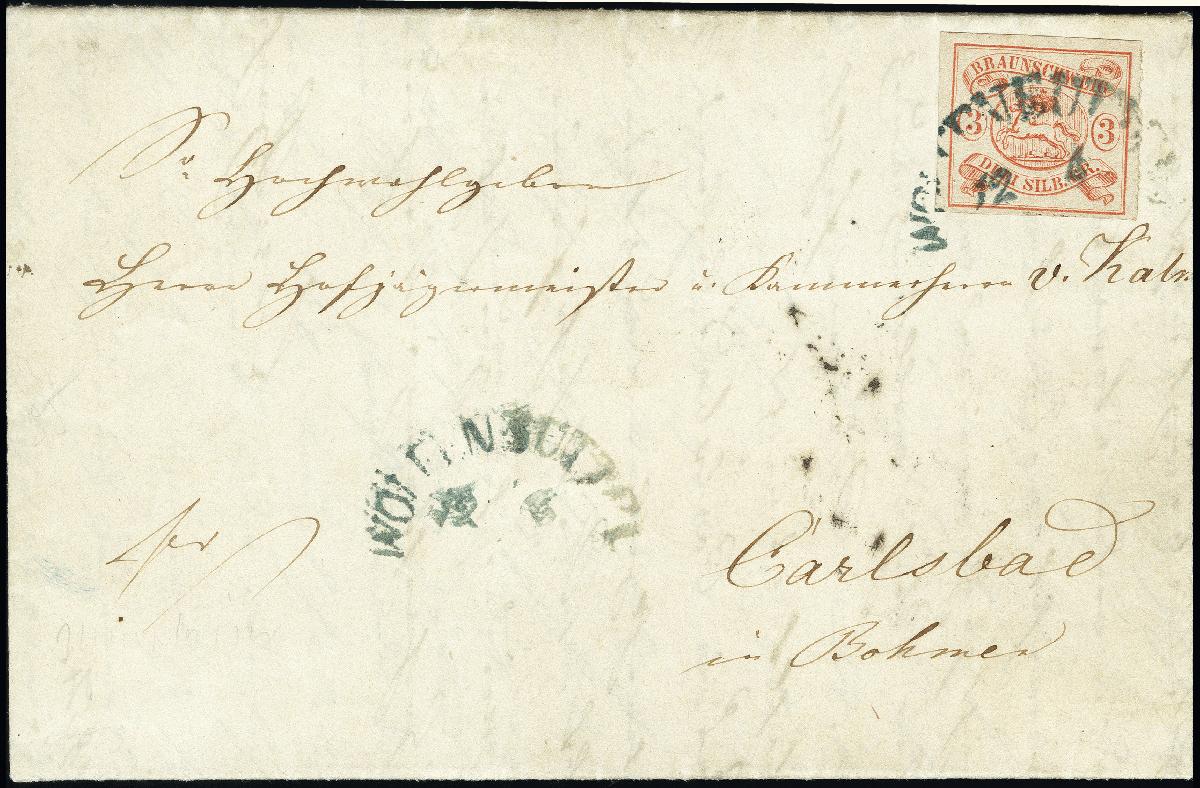 BRAUNSCHWEIG
3 3
DREI SILB. GR.
Sr Hochwohlgeboren
Herrn Hofjägermeister u. Kammerherrn v. Kalm
WOLFENBÜTTEL
Carlsbad
in Böhmen